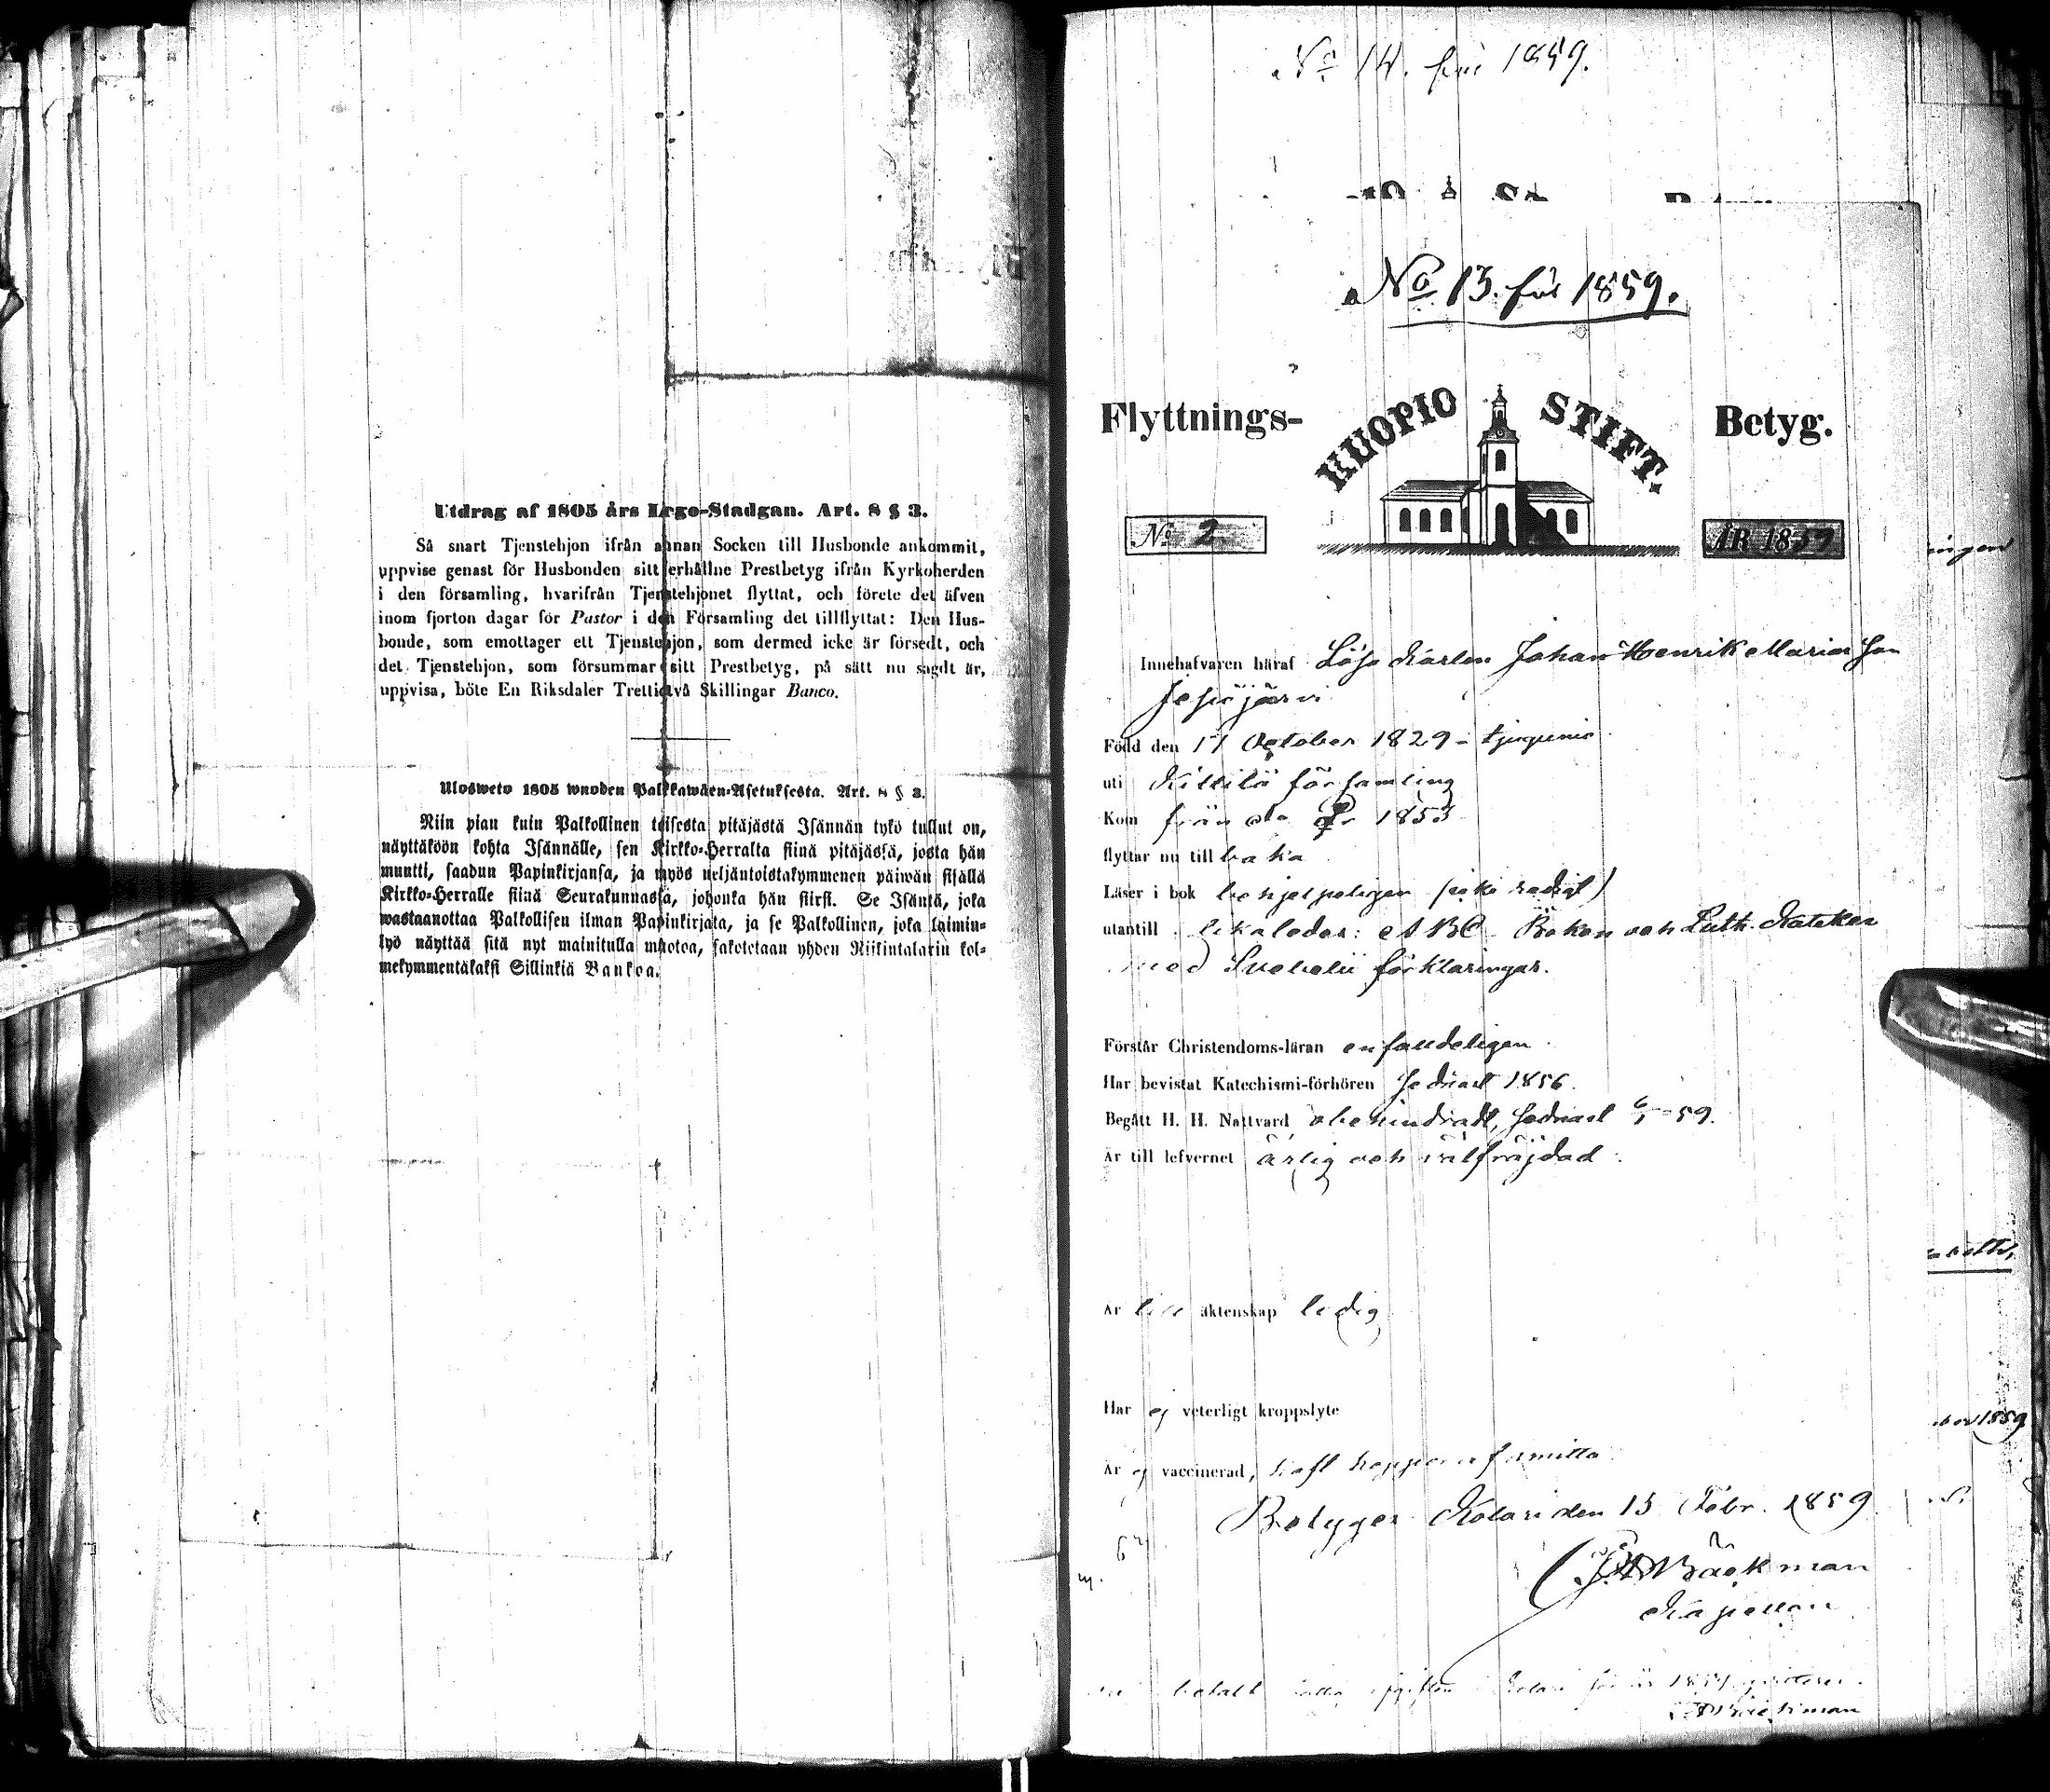 Utdrag af 1805 års Lego-Stadgan. Art. 8 § 3.
Så snart Tjenstehjon ifrån annan Socken till Husbonde ankommit,
uppvise genast för Husbonden sitt erhållne Prestbetyg ifrån Kyrkoherden
i den församling, hvarifrån Tjenstehjonet flyttat, och förete det äfven
inom fjorton dagar för Pastor i den Församling det tillflyttat: Den Hus-
bonde, som emottager ett Tjenstehjon, som dermed icke är försedt, och
det Tjenstehjon, som försummar sitt Prestbetyg, på sätt nu sagdt är,
uppvisa, böte En Riksdaler Trettiotvå Skillingar Banco.
Ulosweto 1805 wuoden Palkkawäen-Asetuksesta. Art. 8 § 3.
Niin pian kuin Palkollinen toisesta pitäjästä Isännän tykö tullut on,
näyttäköön kohta Isännälle, sen Kirkko-Herralta siinä pitäjässä, josta hän
muutti, saadun Papinkirjansa, ja myös neljäntoistakymmenen päiwän sisällä
Kirkko-Herralle siinä Seurakunnassa, johonka hän siirsi. Se Isäntä, joka
wastaanottaa Palkollisen ilman Papinkirjata, ja se Palkollinen, joka laimin-
lyö näyttää sitä nyt mainitulla muotoa, sakotetaan yhden Riikintalarin kol-
mekymmentäkaksi Sillinkiä Bankoa.
No 14. för 1859.
No 13. för 1859.
Flyttnings- KUOPIO STIFT. Betyg.
No 2 ÅR 1859
Innehafvaren häraf Lösa Karlen Johan Henrik Mariæ Son
Jesiöjärvi
Född den 17 October 1829
uti Kittilä församling
Kom från do år 1853
flyttar nu till baka
Läser i bok
utantill ABC Boken och Luth. Kateches
med Svebelii förklaringar.
Förstår Christendoms-läran enfaldeligen
Har bevistat Katechismi-förhören sednast 1856.
Begått H. H. Nattvard obehindradt, sednast 6/1 59.
Är till lefvernet ärlig och välfräjdad
Är till äktenskap ledig
Har ej veterligt kroppslyte
Är ej vaccinerad, haft koppor
Betygar Kolari den 15 Febr. 1859
Bäckman
Kapellan
betalt Kolari för år
Bäckman